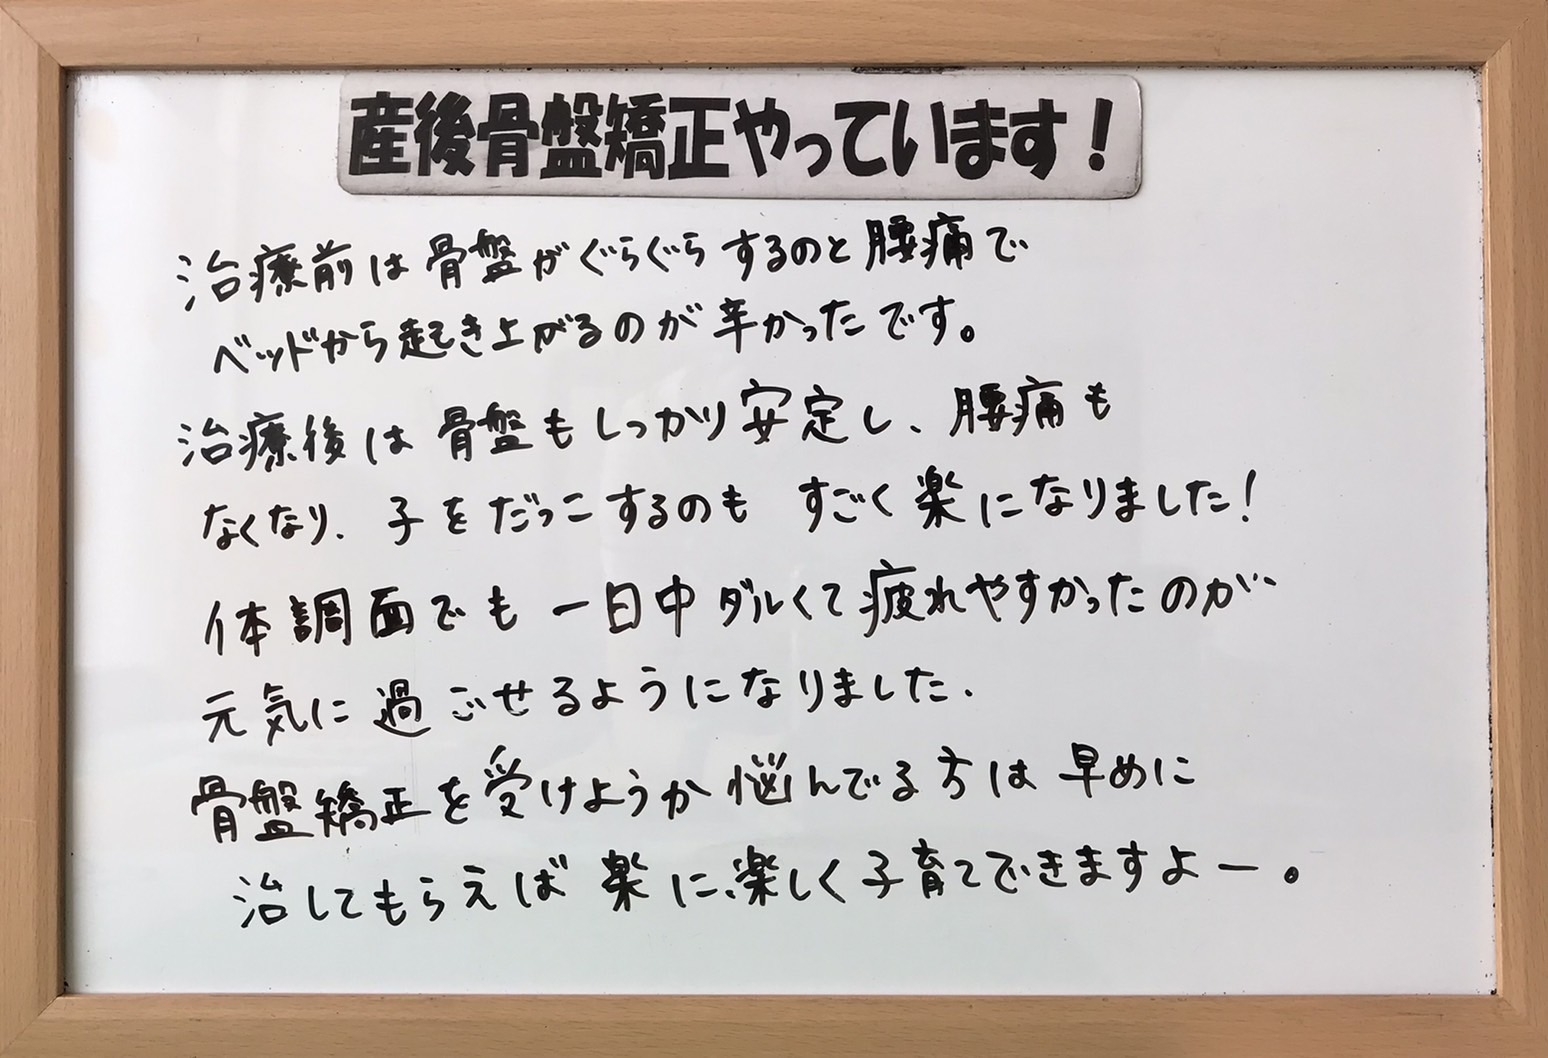 産後骨盤矯正やっています!
治療前は骨盤がぐらぐらするのと腰痛で
ベッドから起き上がるのが辛かったです。
治療後は骨盤もしっかり安定し、腰痛も
なくなり、子をだっこするのも すごく楽になりました!
体調面でも一日中ダルくて疲れやすかったのが
元気に過ごせるようになりました.
骨盤矯正を受けようか悩んでる方は早めに
治してもらえば楽に、楽しく子育てできますよー。